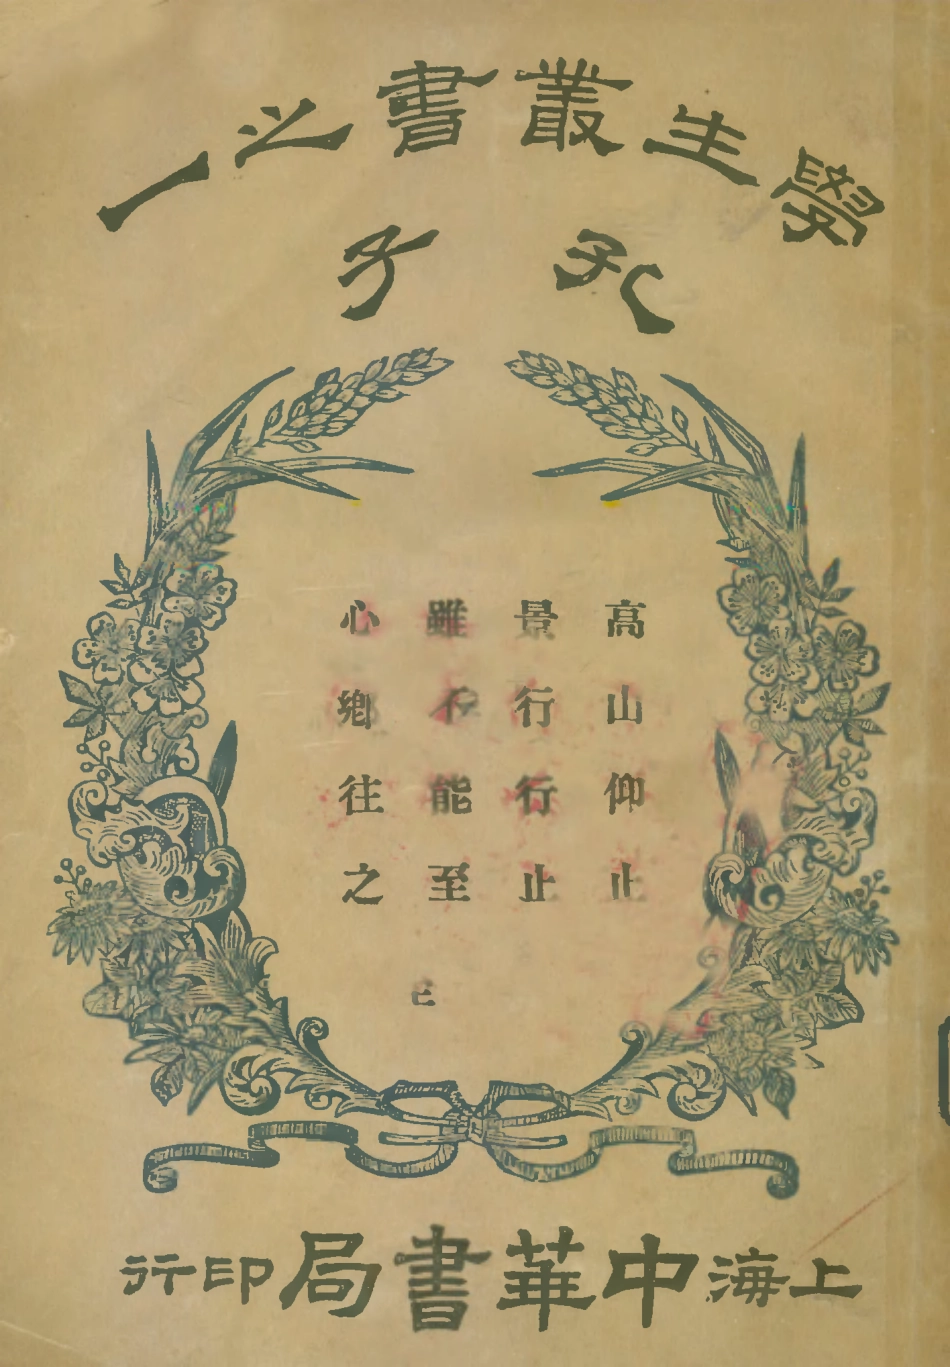 學生叢書之一
孔子
高山仰止
景行行止
雖不能至
心鄉往之
上海中華書局印行